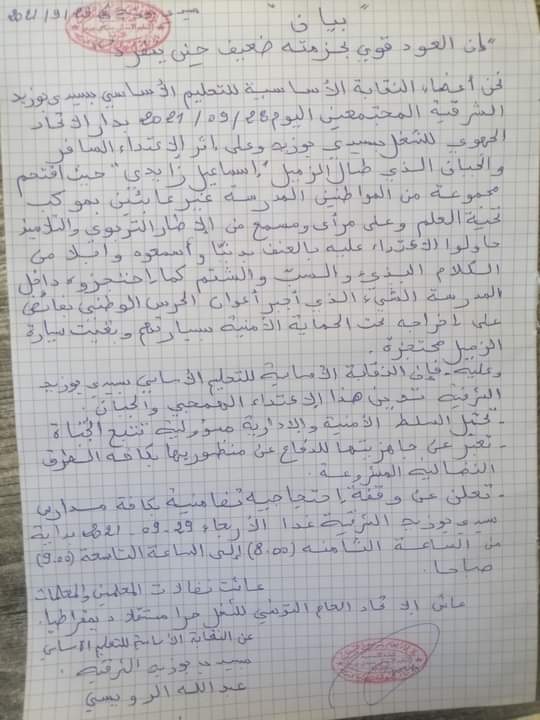 سيدي بوزيد في 28/9/2021
"بيان"
"إن العود قوي بحزمته ضعيف حين ينفرد"
نحن أعضاء النقابة الأساسية للتعليم الأساسي بسيدي بوزيد
الشرقية المجتمعين اليوم 28/09/2021 بدار الاتحاد
الجهوي للشغل بسيدي بوزيد وعلى إثر الإعتداء السافر
والجبان الذي طال الزميل "إسماعيل زايدي" حيث اقتحم
مجموعة من المواطنين المدرسة غير عابئين بموكب
تحية العلم وعلى مرأى ومسمع من الإطار التربوي والتلاميذ
حاولوا الاعتداء عليه بالعنف بدنيا وأسمعوه وابلا من
الكلام البذيء والسب والشتم كما إحتجزوه داخل
المدرسة الشيء الذي أجبر أعوان الحرس الوطني بفائض
على إخراجه تحت الحماية الأمنية بسيارتهم وبقيت سيارة
الزميل محتجزة.
وعليه - فإن النقابة الأساسية للتعليم الأساسي بسيدي بوزيد
الشرقية تدين هذا الإعتداء الهمجي والجبان.
- تحمل السلط الأمنية والإدارية مسؤولية تتبع الجناة
- تعبر عن جاهزيتها للدفاع عن منظوريها بكافة الطرق
النضالية المشروعة.
- تعلن عن وقفة إحتجاجية تضامنية بكافة مدارس
سيدي بوزيد الشرقية غدا الأربعاء 29-09-2021 بداية
من الساعة الثامنة (8.00) إلى الساعة التاسعة (9.00)
صباحا.
عاشت نضالات المعلمين والمعلمات
عاش الاتحاد العام التونسي للشغل حرا مستقلا ديمقراطيا.
عن النقابة الأساسية للتعليم الأساسي
بسيدي بوزيد الشرقية
عبد الله الرويسي